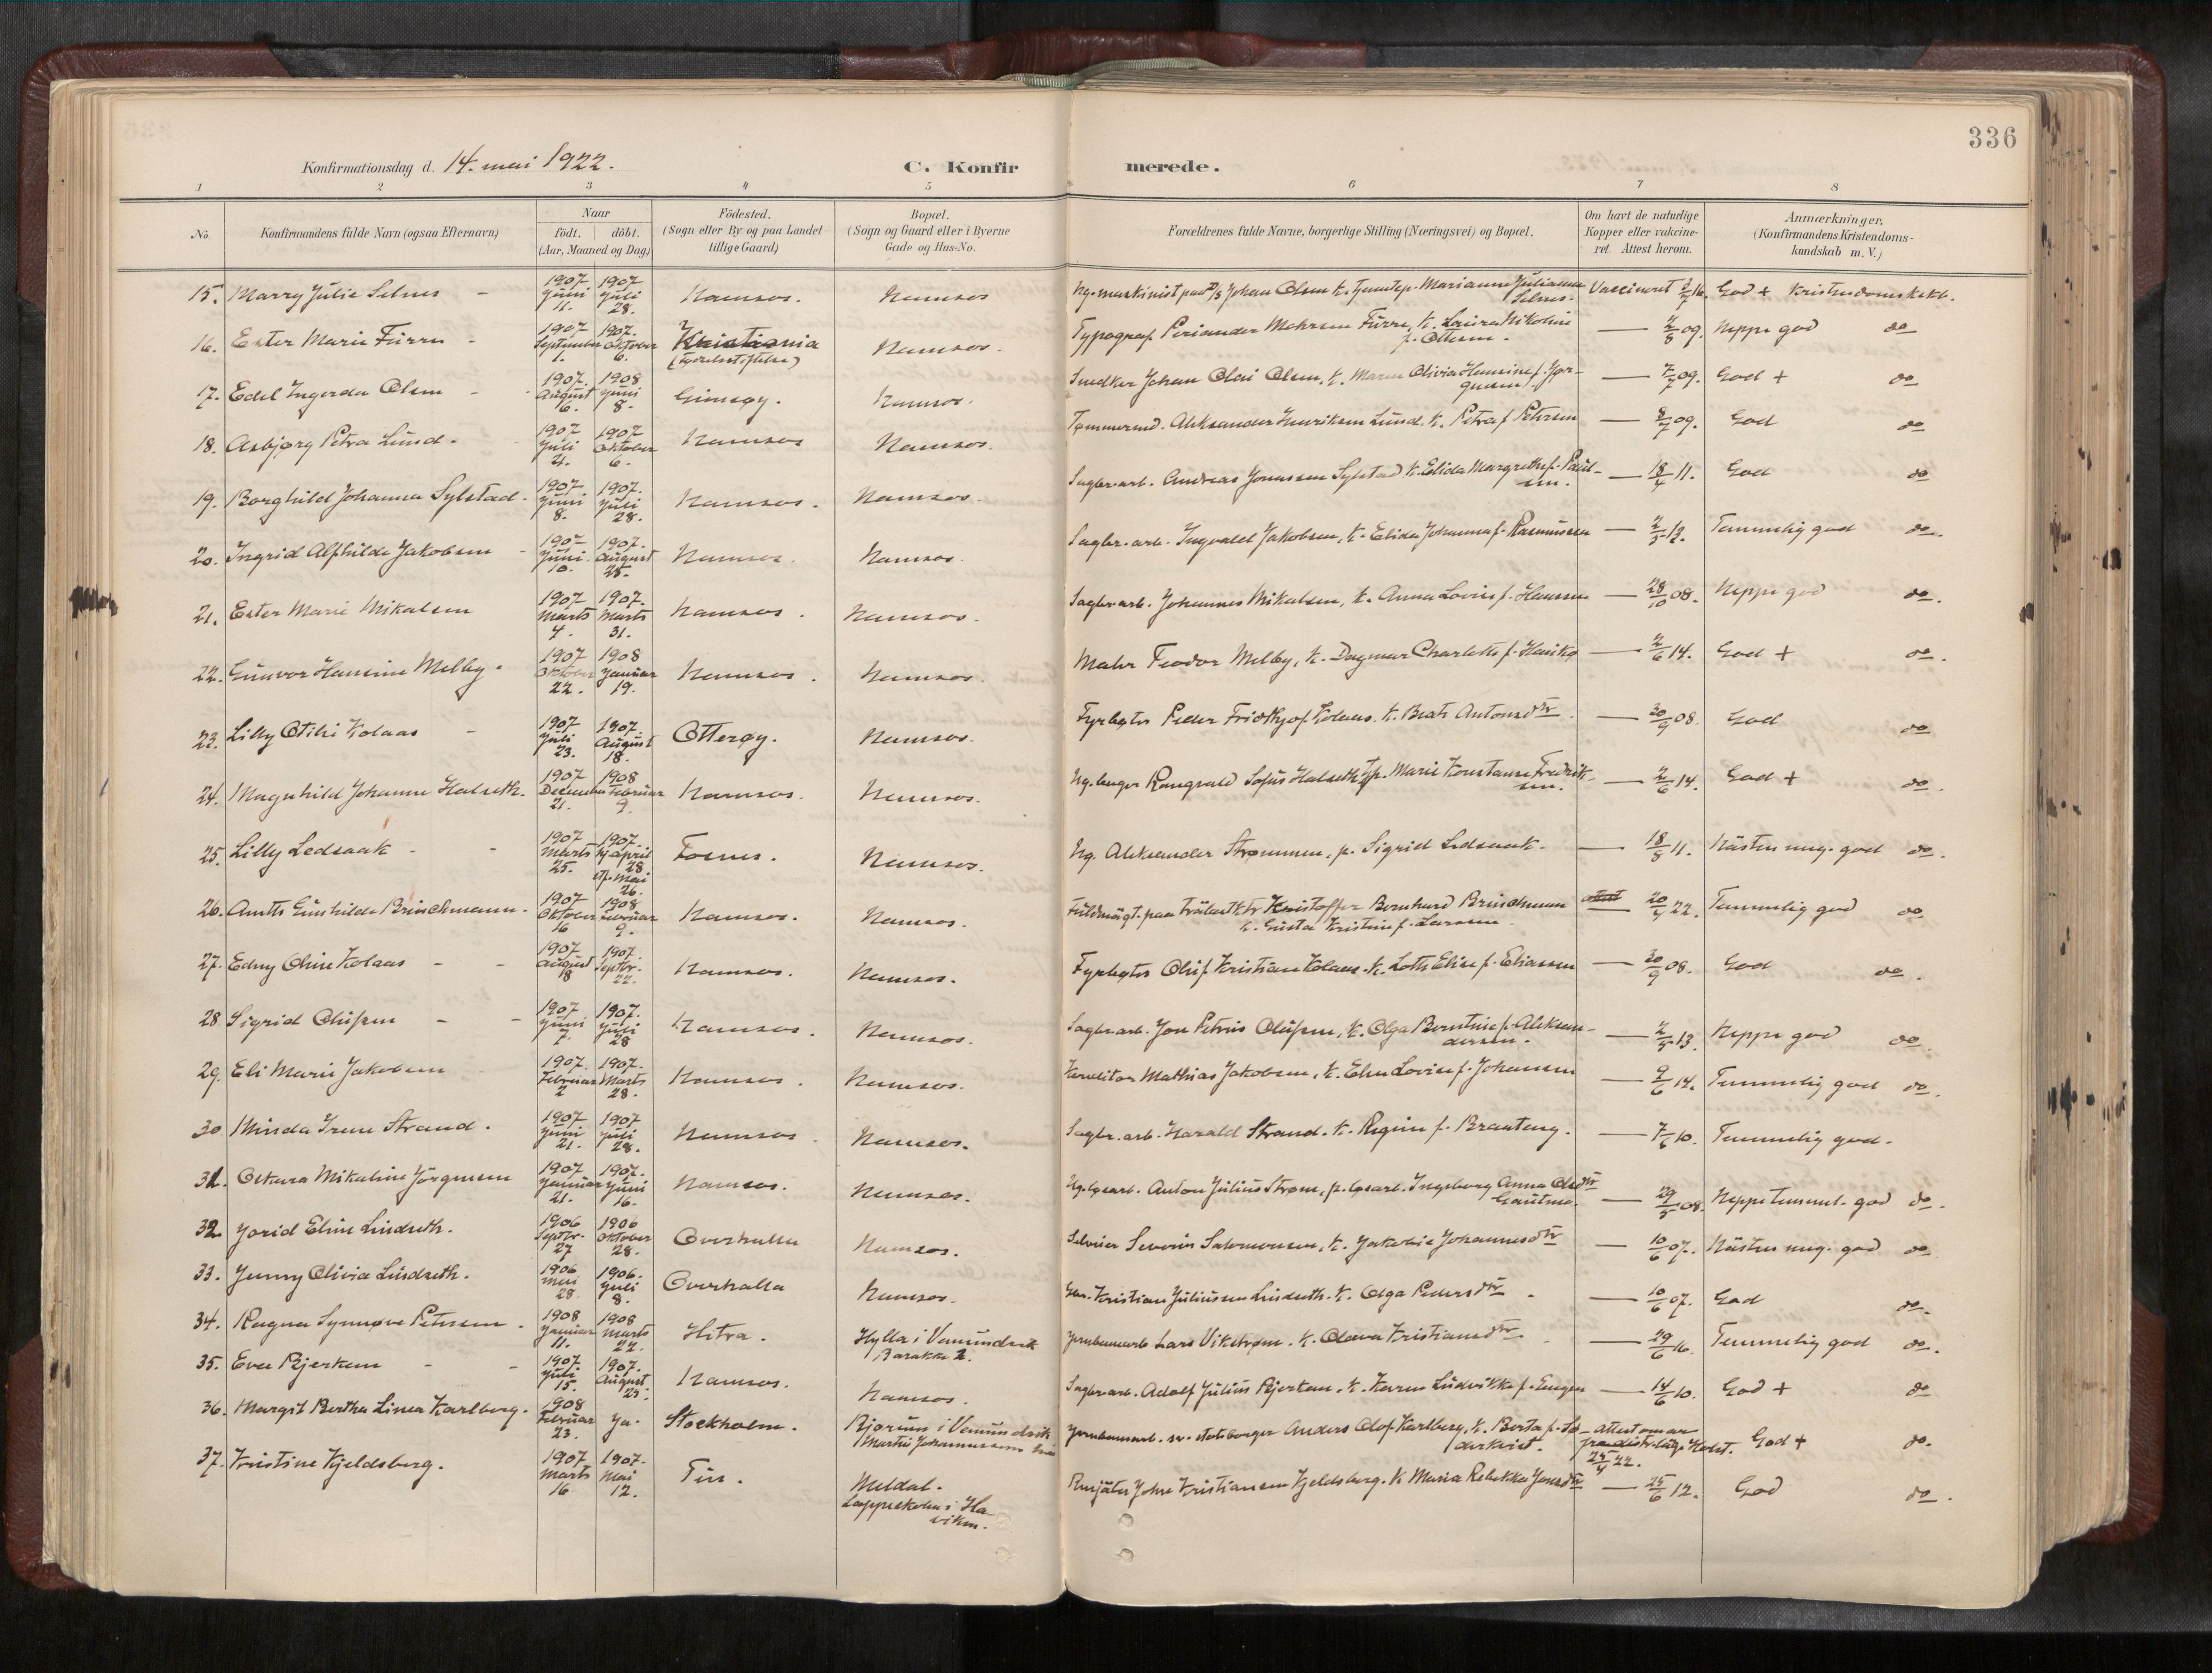 336
Konfirmationsdag d. 14. mai 1922.
C. Konfirmerede.
1 2 3 4 5 6 7 8
No.
Konfirmandens fulde Navn (ogsaa Efternavn)
Naar
født. døbt.
(Aar, Maaned og Dag)
Födested.
(Sogn eller By og paa Landet
tillige Gaard)
Bopæl.
(Sogn og Gaard eller i Byerne
Gade og Hus-No.
Forældrenes fulde Navne, borgerlige Stilling (Næringsvei) og Bopæl.
Om havt de naturlige
Kopper eller vakcine-
ret. Attest herom.
Anmærkninger.
(Konfirmandens Kristendoms-
kundskab m. V.)
15. Marry Julie Selnes - 1907 Juni 11. 1907 Juli 28. Namsos. Namsos Johan Olsen Marianne Julianne Selnes. Vaccineret God + Kristendomskskb.
16. Ester Marie Fürru - 1907 September 1. 1907. Oktober 6. Kristiania (Fødselsstiftelse) Namsos. Typograf Periander Fürru, k. Laura Nikoline f. Ottesen. — 09. Neppe god do
17. Edel Ingerda Olsen - 1907. August 6. 1908 Juni 8. Gimsøy. Namsos. Snedker Johan Olai Olsen, k. Maren Olivia Hansine f. Jør-
gensen — 7/7 09. God + do
18. Asbjørg Petra Lund - 1907 Juli 21. 1907 Oktober 6. Namsos Namsos. Tømmermd. Aleksander Henriksen Lund. k. Petra f. Petersen — 8/7 09. God do
19. Borghild Johanna Sylstad. 1907 Juni 8. 1907. Juli 28. Namsos. Namsos. Sagbr.arb. Andreas Jonassen Sylstad k. Elida Margrethe f. Paul-
sen. — 18/4 11. God do
20. Ingrid Alfhilde Jakobsen - 1907 Juni 10. 1907. August 25. Namsos. Namsos. Sagbr.arb. Ingvald Jakobsen, k. Elida Johanna f. Rasmussen — 2/5 13. Temmelig god do.
21. Ester Marie Mikalsen 1907 Marts 4. 1907. Marts 31. Namsos. Namsos. Sagbr.arb. Johannes Mikalsen, k. Anna Lovise f. Hansen — 28/10 08. Neppe god do.
22. Gunvor Hansine Melby. 1907 Oktober 22. 1908 Januar 19. Namsos. Namsos. Maler Teodor Melby, k. Dagmar Charlotte f. — 2/6 14. God + do.
23. Lilly Otilie Kolaas - 1907 Juli 23. 1907. August 18. Otterøy. Namsos. Fyrbøter Peder Fridthjof Kolaas. k. Berit Antonsdtr. — 30/9 08. God do
24. Magnhild Johanne Halseth. 1907 December 21. 1908 Februar 9. Namsos. Namsos. Rangvald Sofus Halseth, p. Marie Konstanse Fredrik-
sen. — 2/6 14. God + do.
25. Lilly Ledsaak - 1907 Marts 25. 1907. hj. april 28. st. Mai 26. Fosnes. Namsos. Ug. Aleksander Strømmen, p. Sigrid Ledsaak. — 18/8 11. Nästen mg. god do.
26. Gunhilde Brinchmann. 1907 Oktober 16 1908 Februar 9. Namsos. Namsos. Kristoffer Bernhard Brinchmann
k. Gusta Kristine f. Larssen. attest — 20/4 22. Temmelig god do
27. Edny Oline Kolaas - 1907 August 18 1907. Septbr. 22. Namsos. Namsos. Fyrbøter Oluf Kristian Kolaas. k. Lotte Elise f. Eliassen — 30/9 08. God do.
28. Sigrid Olufsen - 1907 Juni 7. 1907. Juli 28 Namsos. Namsos. Sagbr.arb. Jon Petrus Olufsen, k. Olga Berntine f. Aleksan-
dersen. — 2/5 13. Neppe god do.
29. Eli Marie Jakobsen 1907. Februar 2 1907. Marts 28. Namsos. Namsos. Konditor Mathias Jakobsen, k. Elen Lovise f. Johansen — 9/6 14. Temmelig god do.
30. Minda Irene Strand. 1907 Juni 21. 1907. Juli 28. Namsos. Namsos. Sagbr.arb. Harald Strand. k. Regine f. Brauteng. — 7/6 10. Temmelig god.
31. Oskara Mikaline Jörgensen 1907 Januar 21. 1907. Juni 16. Namsos. Namsos. Anton Julius Strøm, p. Ingeborg Anna Olsdtr.
— 29/5 08. Neppe temmel. god do.
32. Jorid Eline Lindseth. 1906 Septbr. 27 1906 Oktober 28. Overhalla Namsos. Selveier Severin Salomonsen, k. Jakobie Johannesdtr — 10/6 07. Nästen mg. god do
33. Jenny Olivia Lindseth. 1906 Mai 28. 1906. Juli 8. Overhalla Namsos. Kristian Juliussen Lindseth. k. Olga Pedersdtr. — 10/6 07. God do.
34. Ragna Synnøve Petersen. 1908 Januar 11. 1908 Marts 22. Hitra. Hylla i Vemundvik
Barakke 2. Jernbanearb. Lars Vikstrøm. k. Olava Kristiansdtr. — 29/6 16. Temmelig god do.
35. Eva Bjerkem - 1907. Juli 15. 1907. August 25. Namsos. Namsos. Sagbr.arb. Adolf Julius Bjerkem, k. Karen Ludvikke f. Engen — 14/6 10. God + do
36. Margit Bertha Linea Karlberg. 1908 Februar 23. Ja. Stockholm. Bjørum i Vemundvik
Jernbanearb. sv. statsborger Anders Olof Karlberg, k. Berta f. Sö-
derkvist. attest om ar
fra distr.läge Holst.
25/4 22. God + do.
37. Kristine Kjeldsberg. 1907 Marts 16 1907. Mai 12. Tin. Meldal.
Lappeskolen i Ha-
viken. Renjäter John Kristiansen Kjeldsberg. k. Maria Rebekka Jonsdtr — 25/6 12. God do.